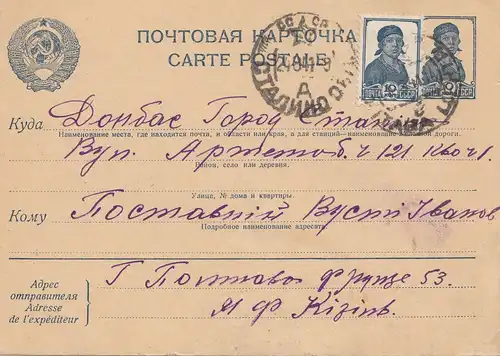 ПОЧТОВАЯ КАРТОЧКА
CARTE POSTALE
СТАЛИНО
ПОЧТА 10 СССР
10
СССР
Куда Донбас Город Сталин
Наименование места, где находится почта, и области или края, а для станций—наименование железной дороги.
Вул. Артема 121
Район, село или деревня.
Улица, № дома и квартиры.
Кому Поставній Вусті Іванов
Подробное наименование адресата
Адрес
отправителя
Adresse
de l'expéditeur
Г Полтава Фрунзе 53.
М Ф